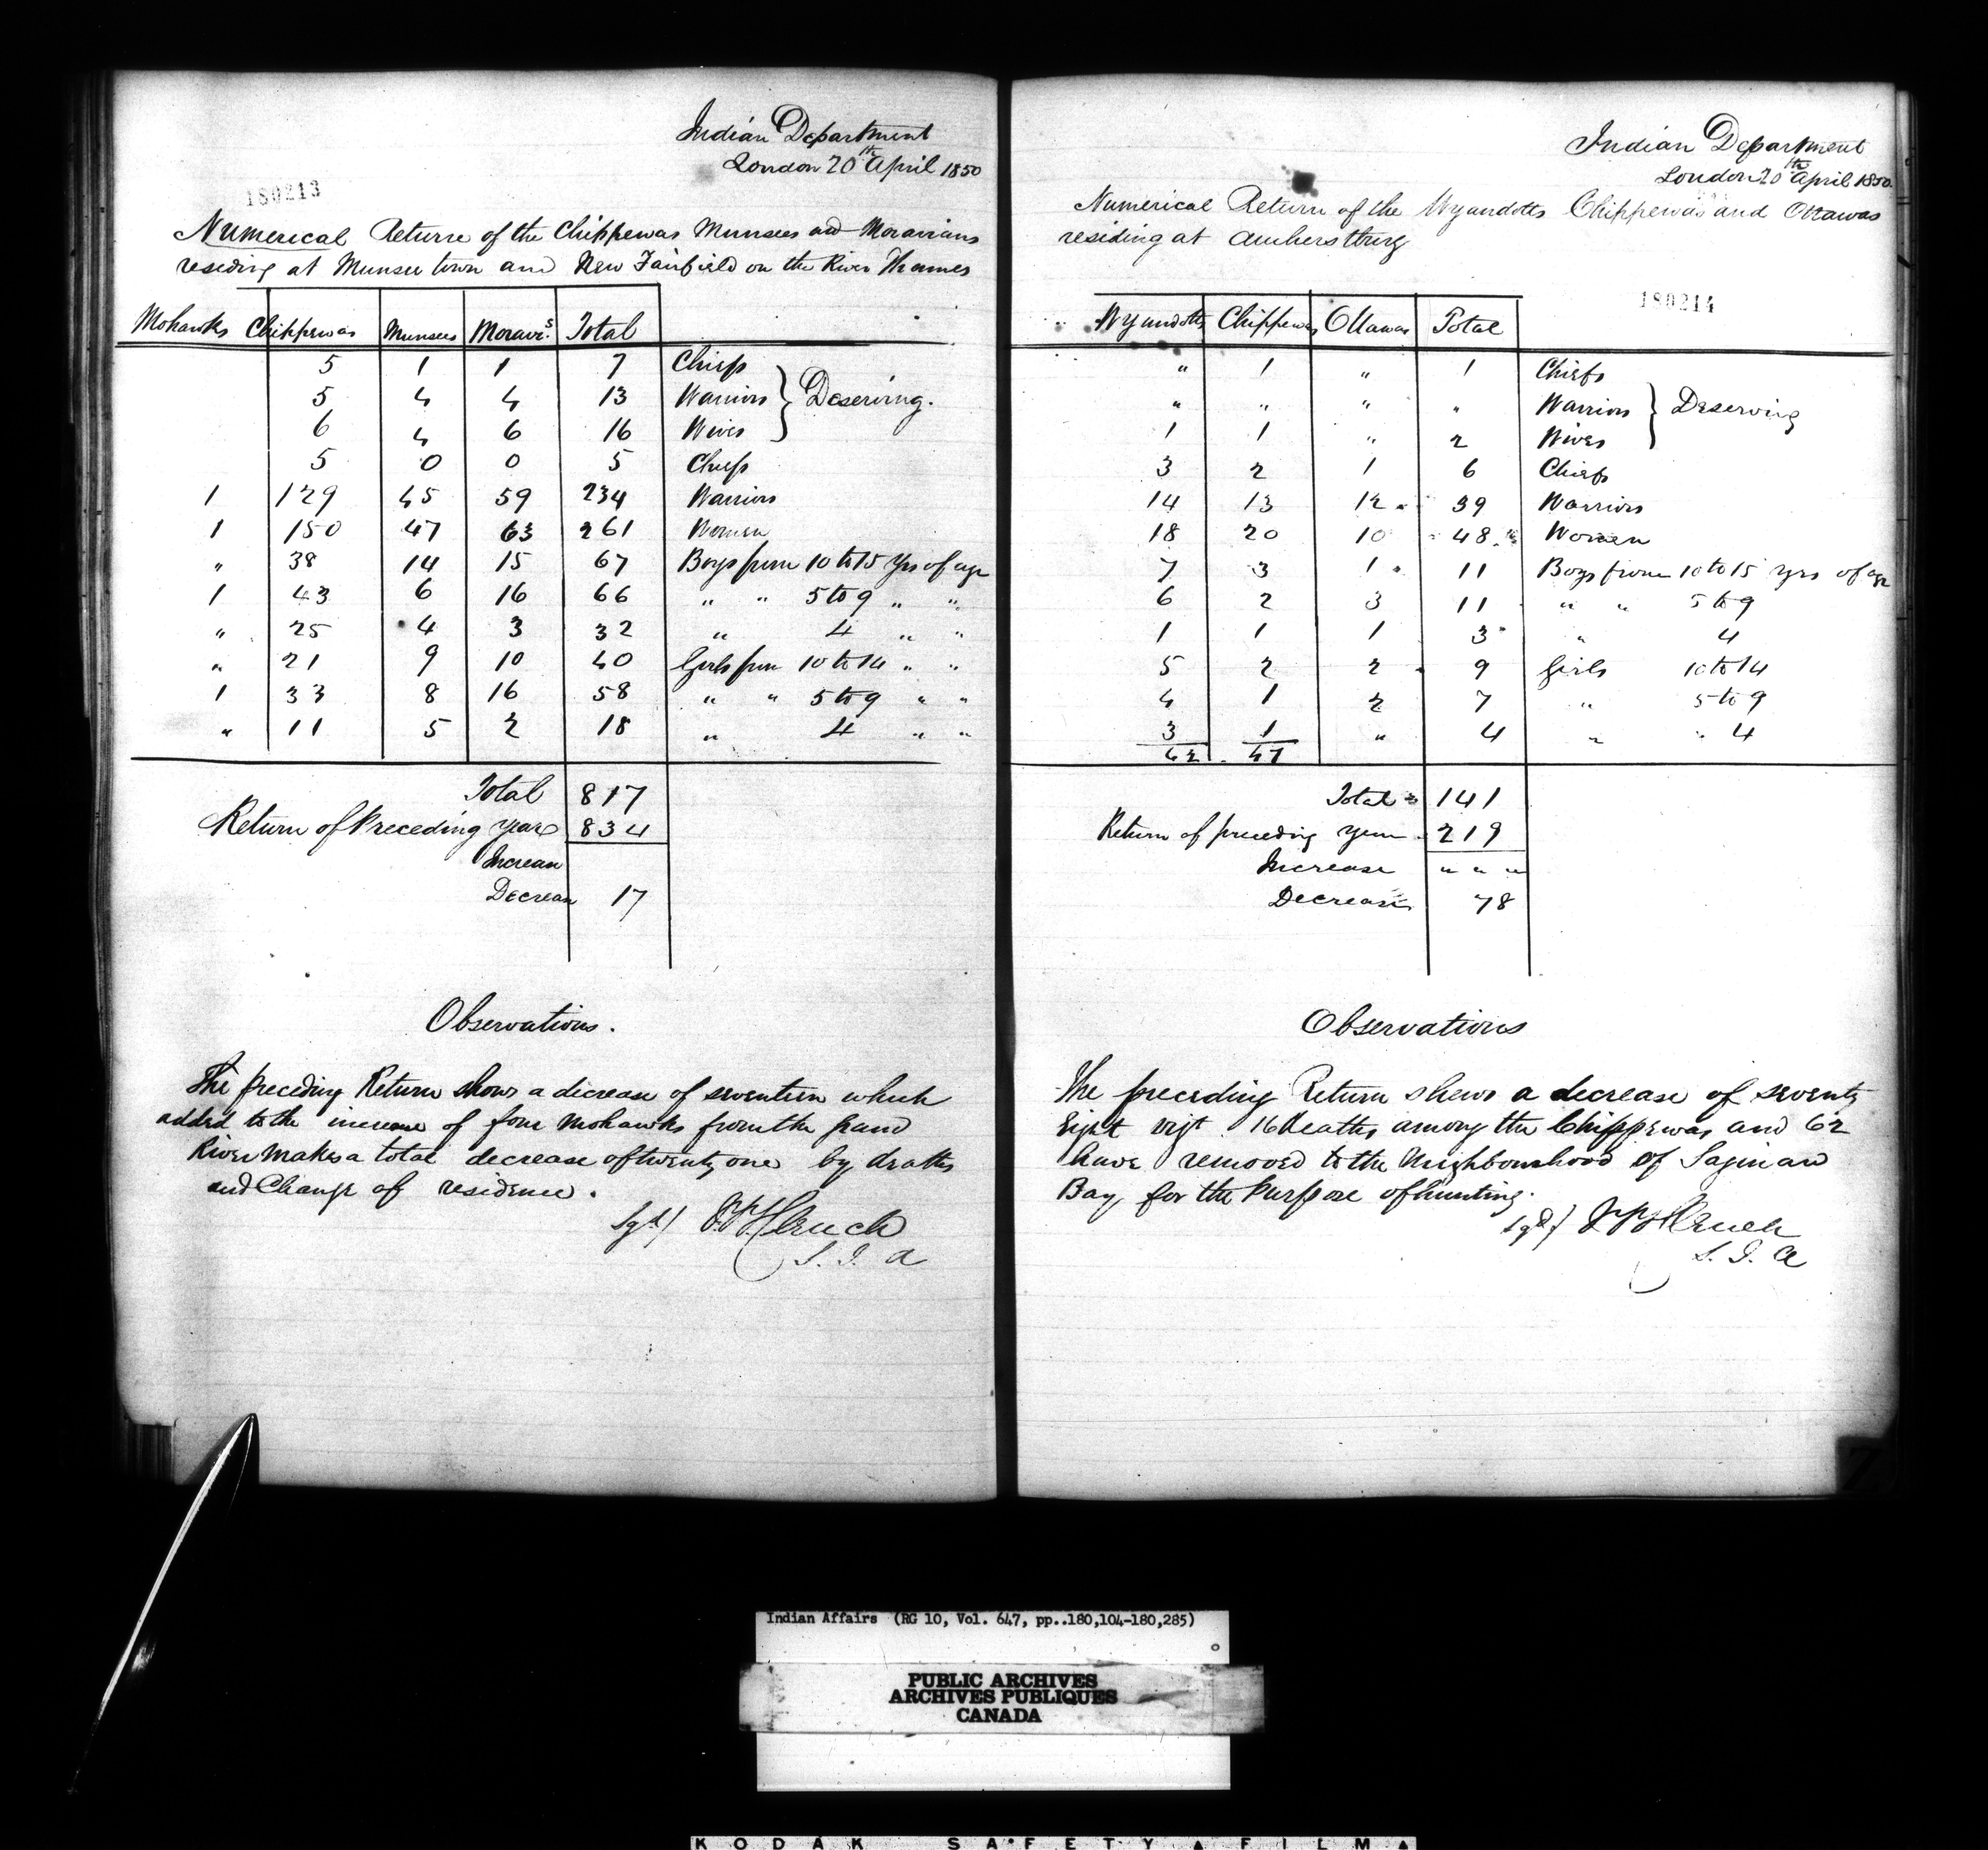 Indian Department
London 20th April 1850
180213
Numerical Return of the Chippewas Munsees and Moravians
residing at Munsee town and New Fairfield on the River Thames
Mohawks Chippewas Munsees Moravi.s Total
5 1 1 7 Chiefs
5 4 4 13 Warriors } Deserving.
6 4 6 16 Wives
5 0 0 5 Chiefs
1 129 45 59 234 Warriors
1 150 47 63 261 Women
" 38 14 15 67 Boys from 10 to 15 Yrs of age
1 43 6 16 66 " " 5 to 9 " "
" 25 4 3 32 " 4 " "
" 21 9 10 40 Girls from 10 to 14 " "
1 33 8 16 58 " " 5 to 9 " "
" 11 5 2 18 " 4 " "
Total 817
Return of Preceding Year 834
Increase
Decrease 17
Observations.
The preceding Return shows a decrease of seventeen which
added to the increase of four Mohawks from the Grand
River makes a total decrease of twenty one by deaths
and Change of residence.
Sgd/ J.B. Clench
S. I. A
Indian Department
London 20th April 1850.
Numerical Return of the Wyandotts Chippewas and Ottawas
residing at Amherstburg
180214
Wyandotts Chippewas Ottawas Total
" 1 " 1 Chiefs
" " " " Warriors } Deserving
1 1 " 2 Wives
3 2 1 6 Chiefs
14 13 12 39 Warriors
18 20 10 48 Women
7 3 1 11 Boys from 10 to 15 yrs of age
6 2 3 11 " " 5 to 9
1 1 1 3 " 4
5 2 2 9 Girls 10 to 14
4 1 2 7 " 5 to 9
3 1 " 4 " " 4
62 47
Total 141
Return of preceding year 219
Increase " " "
Decrease 78
Observations
The preceding Return shews a decrease of seventy
Eight vizt 16 deaths among the Chippewas and 62
have removed to the Neighbourhood of Saginaw
Bay, for the purpose of hunting.
Sgd/ J B Clench
S. I. A
Indian Affairs (RG 10, Vol. 647, pp..180,104-180,285)
PUBLIC ARCHIVES
ARCHIVES PUBLIQUES
CANADA
KODAK SAFETY FILM